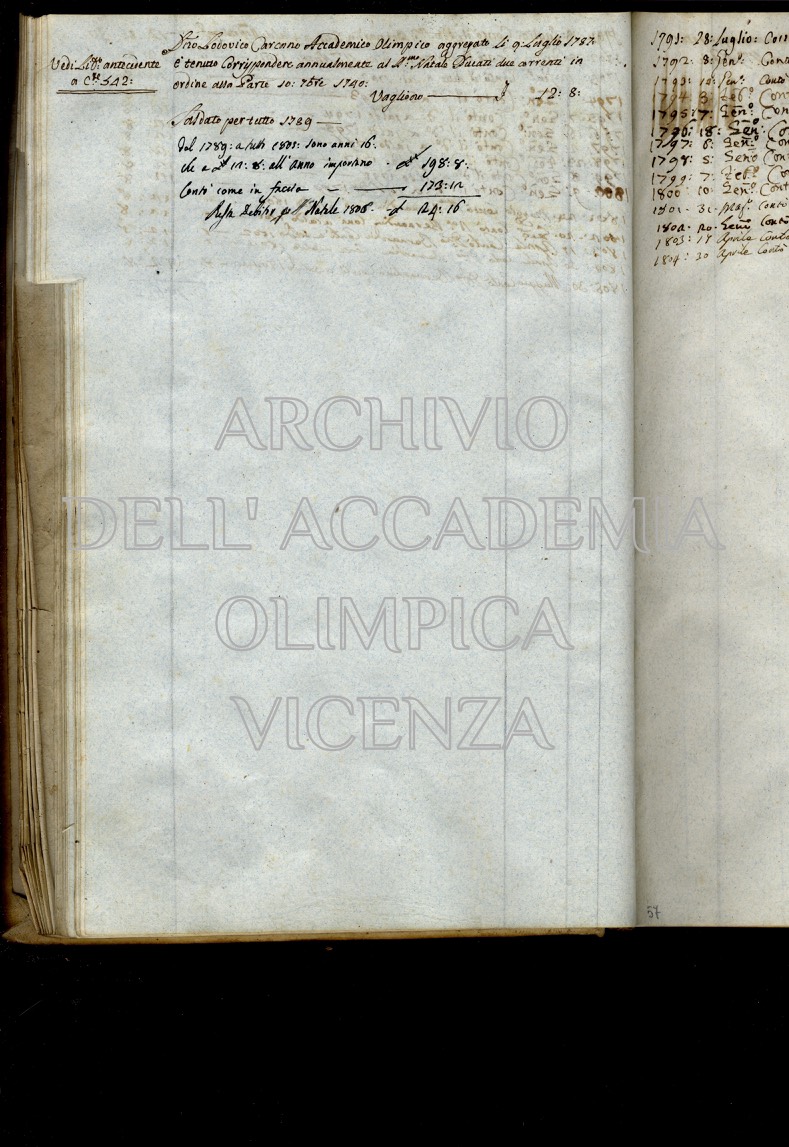 Vedi Lib:º antecedente
a C:te 542:
Dtto Lodovico Carcano Accademico Olimpico aggregato li 9: Luglio 1787:
è tenuto Corrispondere annualmente al S:mo Natale Ducati due correnti in
ordine alla Parte 10: 7bre 1740:
Vagliono 12: 8:
Saldato per tutto 1789
Dal 1789: a tutto 1805: sono anni 16.
che a 12: 8: all'anno importano 198: 8:
Conto come in faccia 173: 12
Resta Debitor Natale 1806. 24: 16
1791: 28: Luglio:
1792: 8: Gen:º
1793: 12: Gen:º Contò
1794: 3: Feb:º
1795: 7: Gen:º
1796: 18: Gen:º
1797: 6: Gen:º
1798: 5: Genº
1799: 7: Feb:º
1800: 10: Gen:º Contò
1801. 31: Mag:º Contò
1802. 20. Gen: Contò
1803: 17 Aprile Contò
1804: 30 Aprile Contò
57
ARCHIVIO
DELL' ACCADEMIA
OLIMPICA
VICENZA